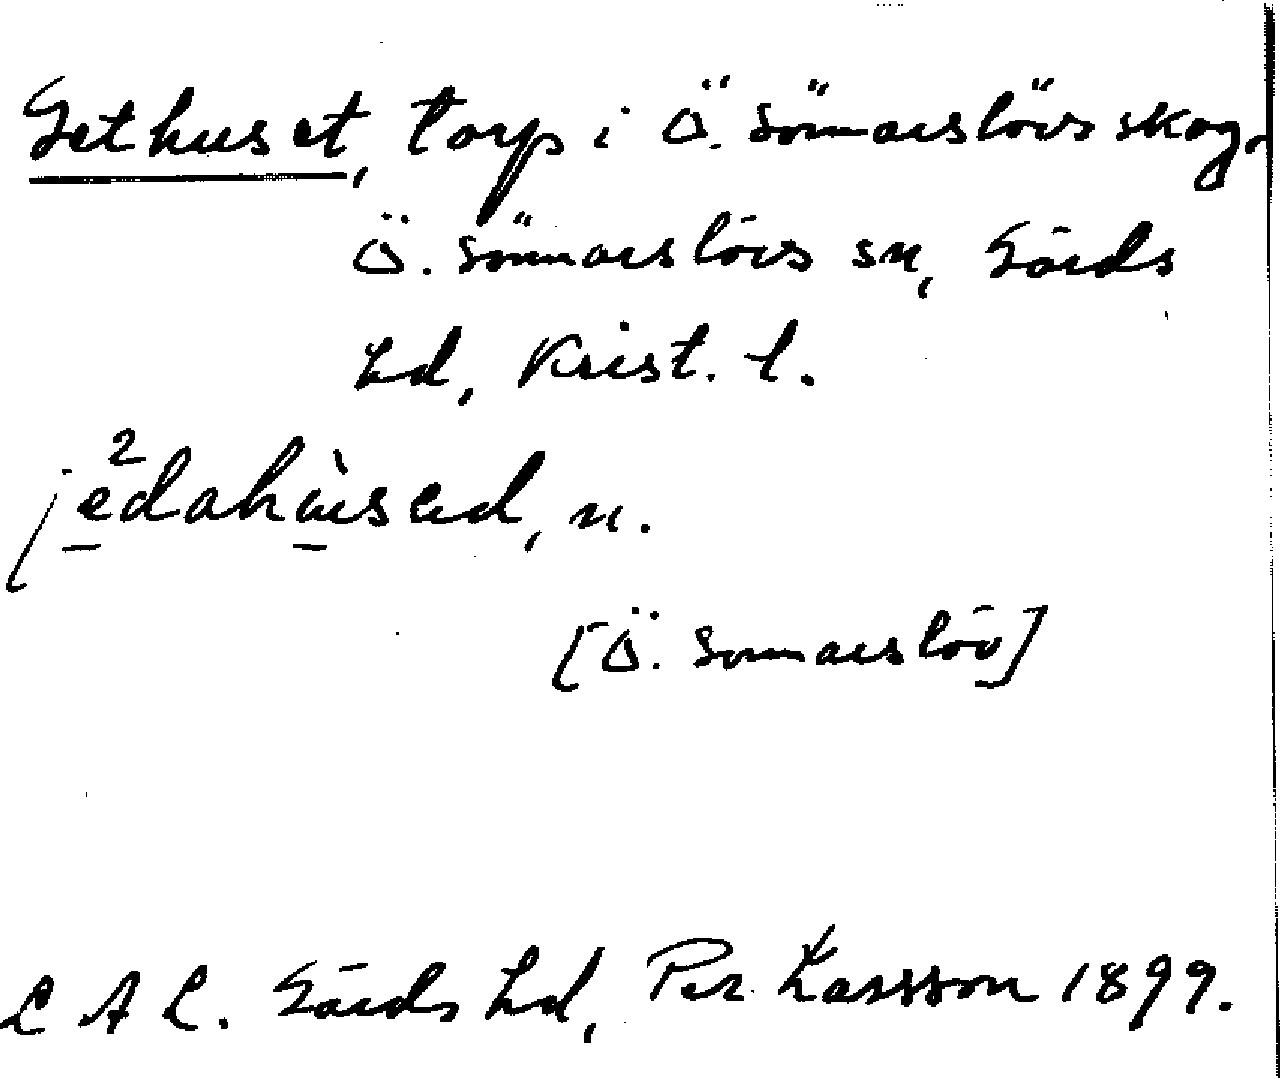 Gethuset, torp i Ö. Sönnarslövs skog.
Ö. Sönnarslövs sn, Gärds
hd, Krist. l.
jedahùsed, n.
[Ö. Sonnarslöv]
L A L. Gärds hd, Per Larsson 1899.